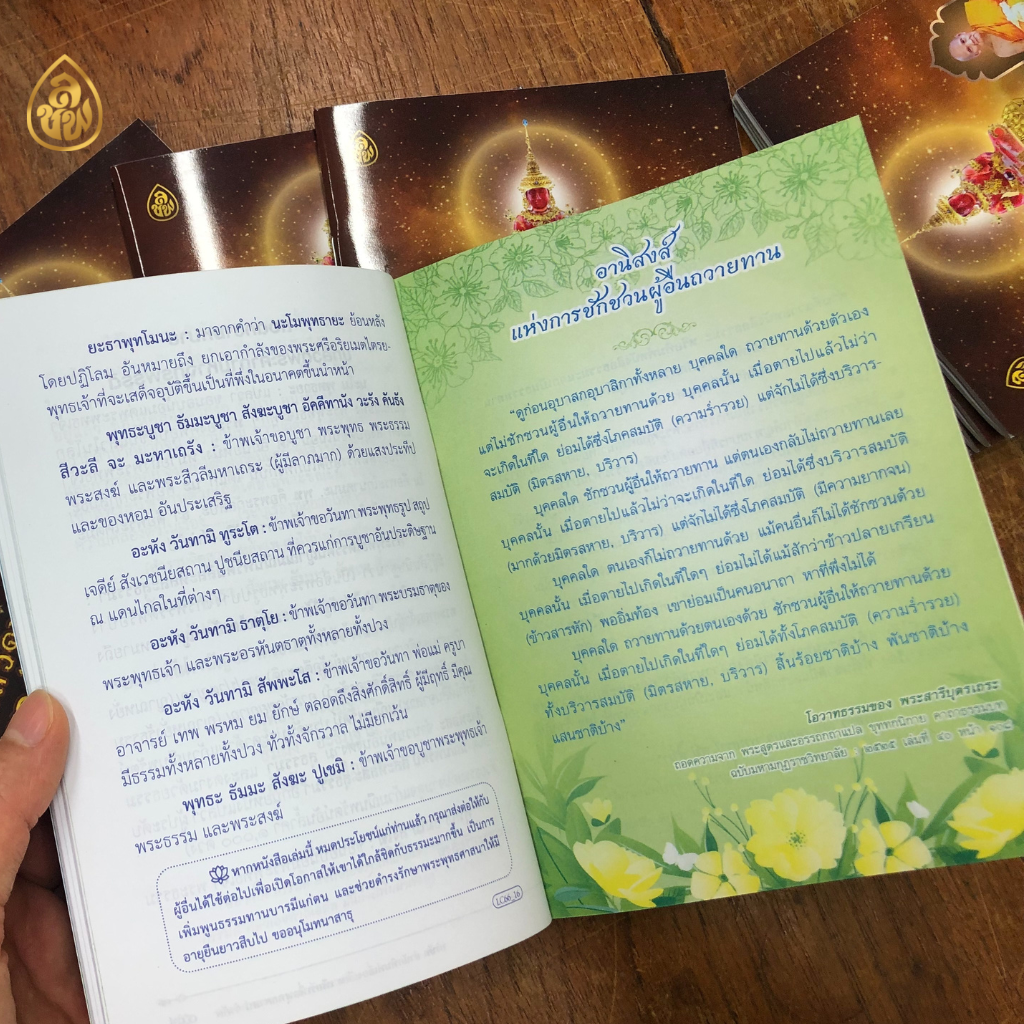 ลีซุน
ยะธาพุทโมนะ : มาจากคำว่า นะโมพุทธายะ ย้อนหลัง
โดยปฏิโลม อันหมายถึง ยกเอากำลังของพระศรีอริยเมตไตรยะ-
พุทธเจ้าที่จะเสด็จอุบัติขึ้นเป็นที่พึ่งในอนาคตขึ้นนำหน้า
พุทธะบูชา ธัมมะบูชา สังฆะบูชา อัคคีทานัง วะรัง คันธัง
สีวะลี จะ มะหาเถรัง : ข้าพเจ้าขอบูชา พระพุทธ พระธรรม
พระสงฆ์ และพระสีวลีมหาเถระ (ผู้มีลาภมาก) ด้วยแสงประทีป
และของหอม อันประเสริฐ
อะหัง วันทามิ ทูระโต : ข้าพเจ้าขอวันทา พระพุทธรูป สถูป
เจดีย์ สังเวชนียสถาน ปูชนียสถาน ที่ควรแก่การบูชาอันประดิษฐาน
ณ แดนไกลในที่ต่างๆ
อะหัง วันทามิ ธาตุโย : ข้าพเจ้าขอวันทา พระบรมธาตุของ
พระพุทธเจ้า และพระอรหันตธาตุทั้งหลายทั้งปวง
อะหัง วันทามิ สัพพะโส : ข้าพเจ้าขอวันทา พ่อแม่ ครูบา
อาจารย์ เทพ พรหม ยม ยักษ์ ตลอดถึงสิ่งศักดิ์สิทธิ์ ผู้มีฤทธิ์ มีคุณ
มีธรรมทั้งหลายทั้งปวง ทั่วทั้งจักรวาล ไม่มียกเว้น
พุทธะ ธัมมะ สังฆะ ปูเชมิ : ข้าพเจ้าขอบูชาพระพุทธเจ้า
พระธรรม และพระสงฆ์
หากหนังสือเล่มนี้ หมดประโยชน์แก่ท่านแล้ว กรุณาส่งต่อให้กับ
ผู้อื่นได้ใช้ต่อไปเพื่อเปิดโอกาสให้เขาได้ใกล้ชิดกับธรรมะมากขึ้น เป็นการ
เพิ่มพูนธรรมทานบารมีแก่ตน และช่วยดำรงรักษาพระพุทธศาสนาให้มี
อายุยืนยาวสืบไป ขออนุโมทนาสาธุ
LC66_16
อานิสงส์
แห่งการชักชวนผู้อื่นถวายทาน
"ดูก่อนอุบาสกอุบาสิกาทั้งหลาย บุคคลใด ถวายทานด้วยตัวเอง
แต่ไม่ชักชวนผู้อื่นให้ถวายทานด้วย บุคคลนั้น เมื่อตายไปแล้วไม่ว่า
จะเกิดในที่ใด ย่อมได้ซึ่งโภคสมบัติ (ความร่ำรวย) แต่จักไม่ได้ซึ่งบริวาร-
สมบัติ (มิตรสหาย, บริวาร)
บุคคลใด ชักชวนผู้อื่นให้ถวายทาน แต่ตนเองกลับไม่ถวายทานเลย
บุคคลนั้น เมื่อตายไปแล้วไม่ว่าจะเกิดในที่ใด ย่อมได้ซึ่งบริวารสมบัติ
(มากด้วยมิตรสหาย, บริวาร) แต่จักไม่ได้ซึ่งโภคสมบัติ (มีความยากจน)
บุคคลใด ตนเองก็ไม่ถวายทานด้วย แม้คนอื่นก็ไม่ได้ชักชวนด้วย
บุคคลนั้น เมื่อตายไปเกิดในที่ใดๆ ย่อมไม่ได้แม้สักว่าข้าวปลายเกรียน
(ข้าวสารหัก) พออิ่มท้อง เขาย่อมเป็นคนอนาถา หาที่พึ่งไม่ได้
บุคคลใด ถวายทานด้วยตนเองด้วย ชักชวนผู้อื่นให้ถวายทานด้วย
บุคคลนั้น เมื่อตายไปเกิดในที่ใดๆ ย่อมได้ทั้งโภคสมบัติ (ความร่ำรวย)
ทั้งบริวารสมบัติ (มิตรสหาย, บริวาร) สิ้นร้อยชาติบ้าง พันชาติบ้าง
แสนชาติบ้าง"
โอวาทธรรมของ พระสารีบุตรเถระ
ถอดความจาก พระสูตรและอรรถกถาแปล ขุททกนิกาย คาถาธรรมบท
ฉบับมหามกุฏราชวิทยาลัย ๒๕๒๕ เล่มที่ ๔๐ หน้า